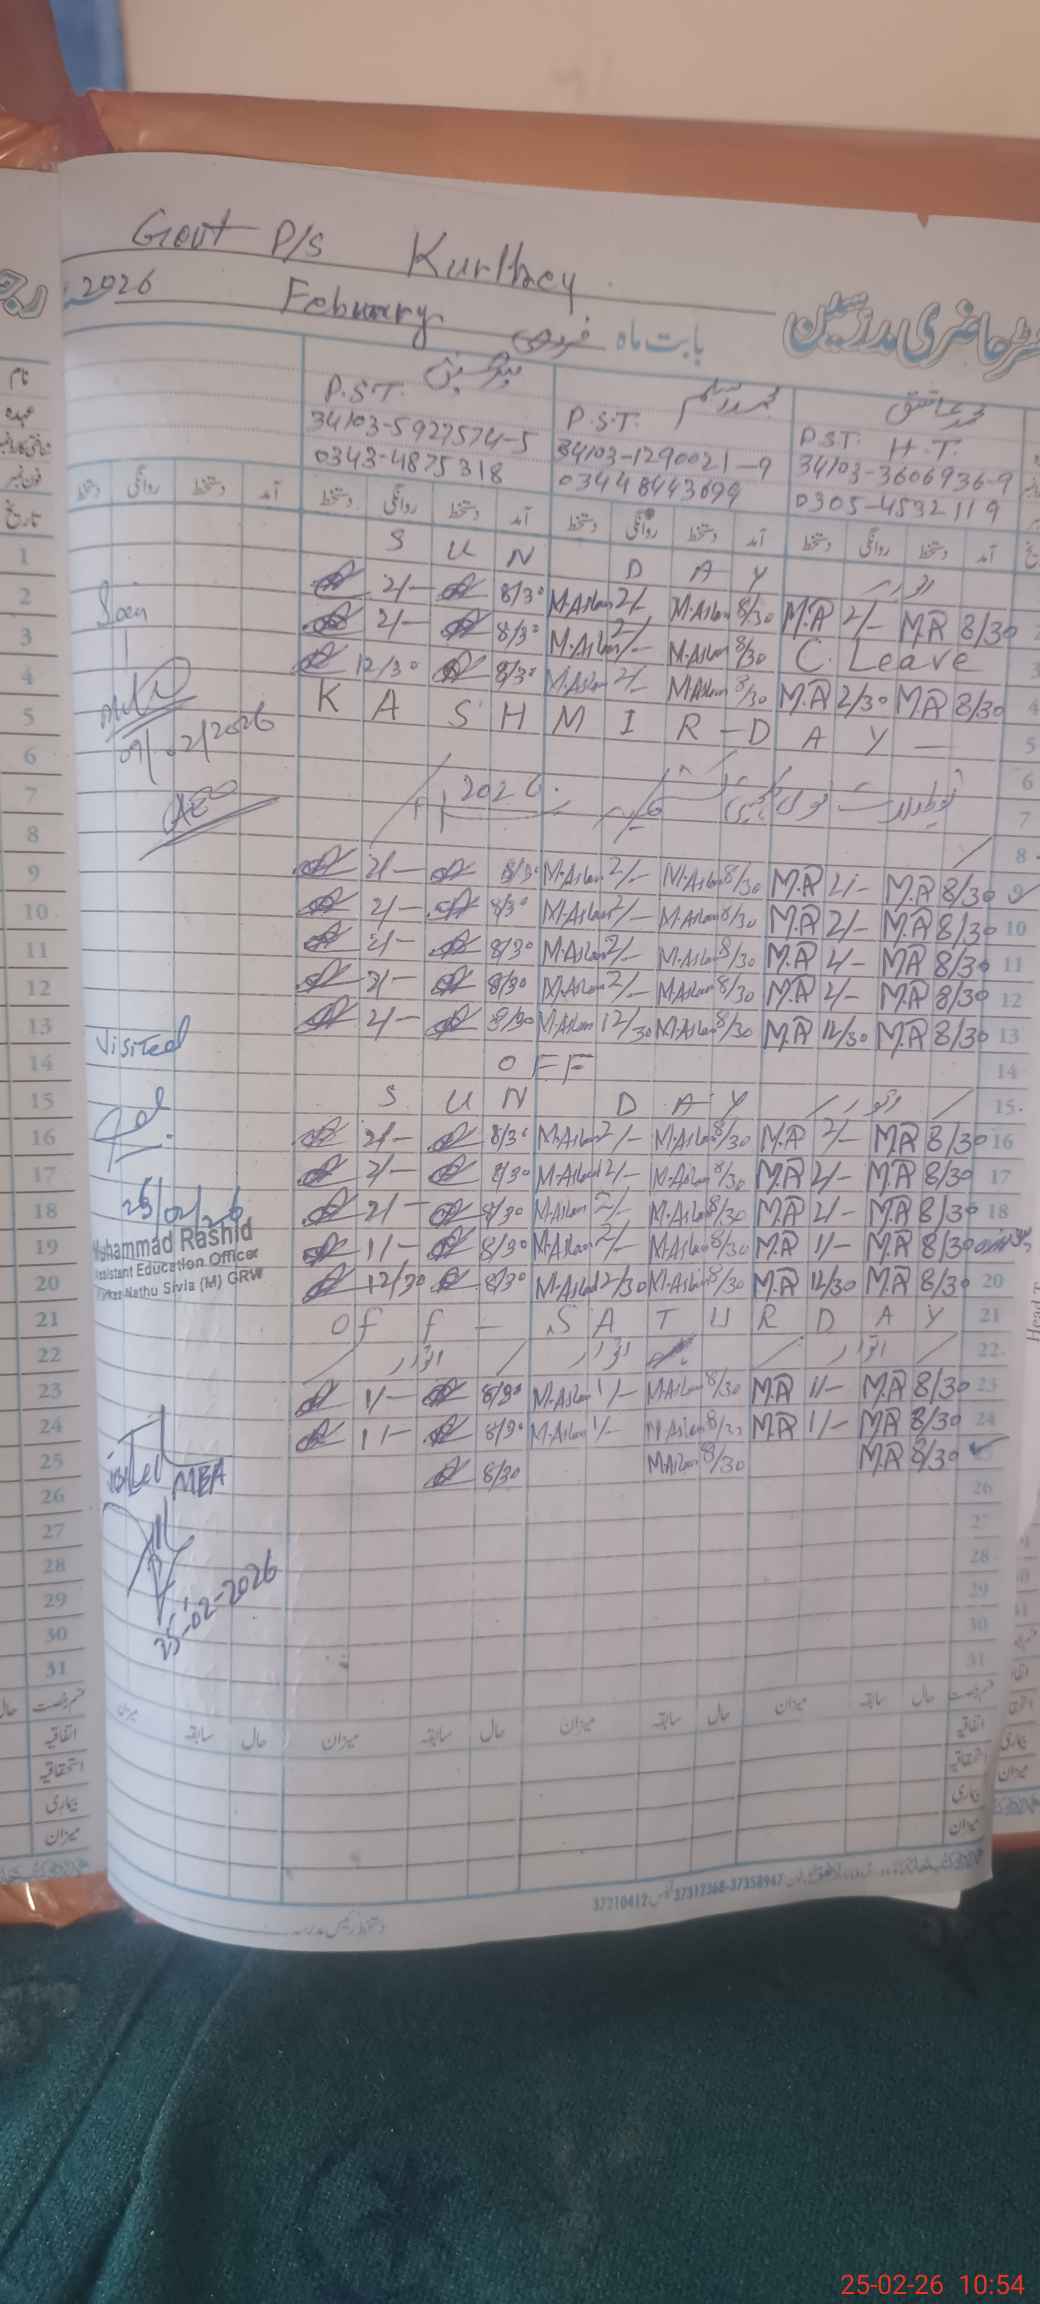 Govt P/S Kurlkey
2026 Febuary فروری بابت ماہ رجسٹر حاضری مدرسین
محمد عاشق
P.S.T. P.S.T. PST. H.T.
34103-5927574-5 34103-1290021-9 34103-3606936-9
0343-4875318 03448443699 0305-4532119
دستخط روانگی دستخط آمد دستخط روانگی دستخط آمد دستخط روانگی دستخط آمد دستخط روانگی دستخط آمد تاریخ
1 S U N D A Y اتوار
2 2/- 8/30 M.Aslam 2/- M.Aslam 8/30 M.A 2/- M.A 8/30
3 Seen 2/- 8/30 M.Aslam 2/- M.Aslam 8/30 C. Leave
4 12/30 8/30 M.Aslam 2/- M.Aslam 8/30 M.A 2/30 M.A 8/30 4
5 K A S H M I R - D A Y - 5
6 09/02/2026 6
7 AEO 2026 7
8 8
9 2/- 8/30 M.Aslam 2/- M.Aslam 8/30 M.A 2/- M.A 8/30 9
10 2/- 8/30 M.Aslam 2/- M.Aslam 8/30 M.A 2/- M.A 8/30 10
11 2/- 8/30 M.Aslam 2/- M.Aslam 8/30 M.A 2/- M.A 8/30 11
12 2/- 8/30 M.Aslam 2/- M.Aslam 8/30 M.A 2/- M.A 8/30 12
13 Visited 2/- 8/30 M.Aslam 12/30 M.Aslam 8/30 M.A 12/30 M.A 8/30 13
14 OFF 14
15 S U N D A Y اتوار 15
16 2/- 8/30 M.Aslam 2/- M.Aslam 8/30 M.A 2/- M.A 8/30 16
17 2/- 8/30 M.Aslam 2/- M.Aslam 8/30 M.A 2/- M.A 8/30 17
18 25/02/26 2/- 8/30 M.Aslam 2/- M.Aslam 8/30 M.A 2/- M.A 8/30 18
Muhammad Rashid
19 Assistant Education Officer 1/- 8/30 M.Aslam 2/- M.Aslam 8/30 M.A 1/- M.A 8/30
20 Markaz Nathu Sivia (M) GRW 12/30 8/30 M.Aslam 12/30 M.Aslam 8/30 M.A 12/30 M.A 8/30 20
21 Of f - S A T U R D A Y 21
22 اتوار اتوار اتوار 22
23 1/- 8/30 M.Aslam 1/- M.Aslam 8/30 M.A 1/- M.A 8/30 23
24 1/- 8/30 M.Aslam 1/- M.Aslam 8/30 M.A 1/- M.A 8/30 24
25 Visited MEA 8/30 M.Aslam 8/30 M.A 8/30
26 26
27 27
28 28
29 25-02-2026 29
30 30
31 31
میزان سابقہ حال میزان سابقہ حال میزان سابقہ حال میزان سابقہ حال قسم رخصت
اتفاقیہ اتفاقیہ
استحقاقیہ استحقاقیہ
بیماری بیماری
میزان میزان
37210412 37312368-37358947
دستخط رئیس مدرسہ
25-02-26 10:54